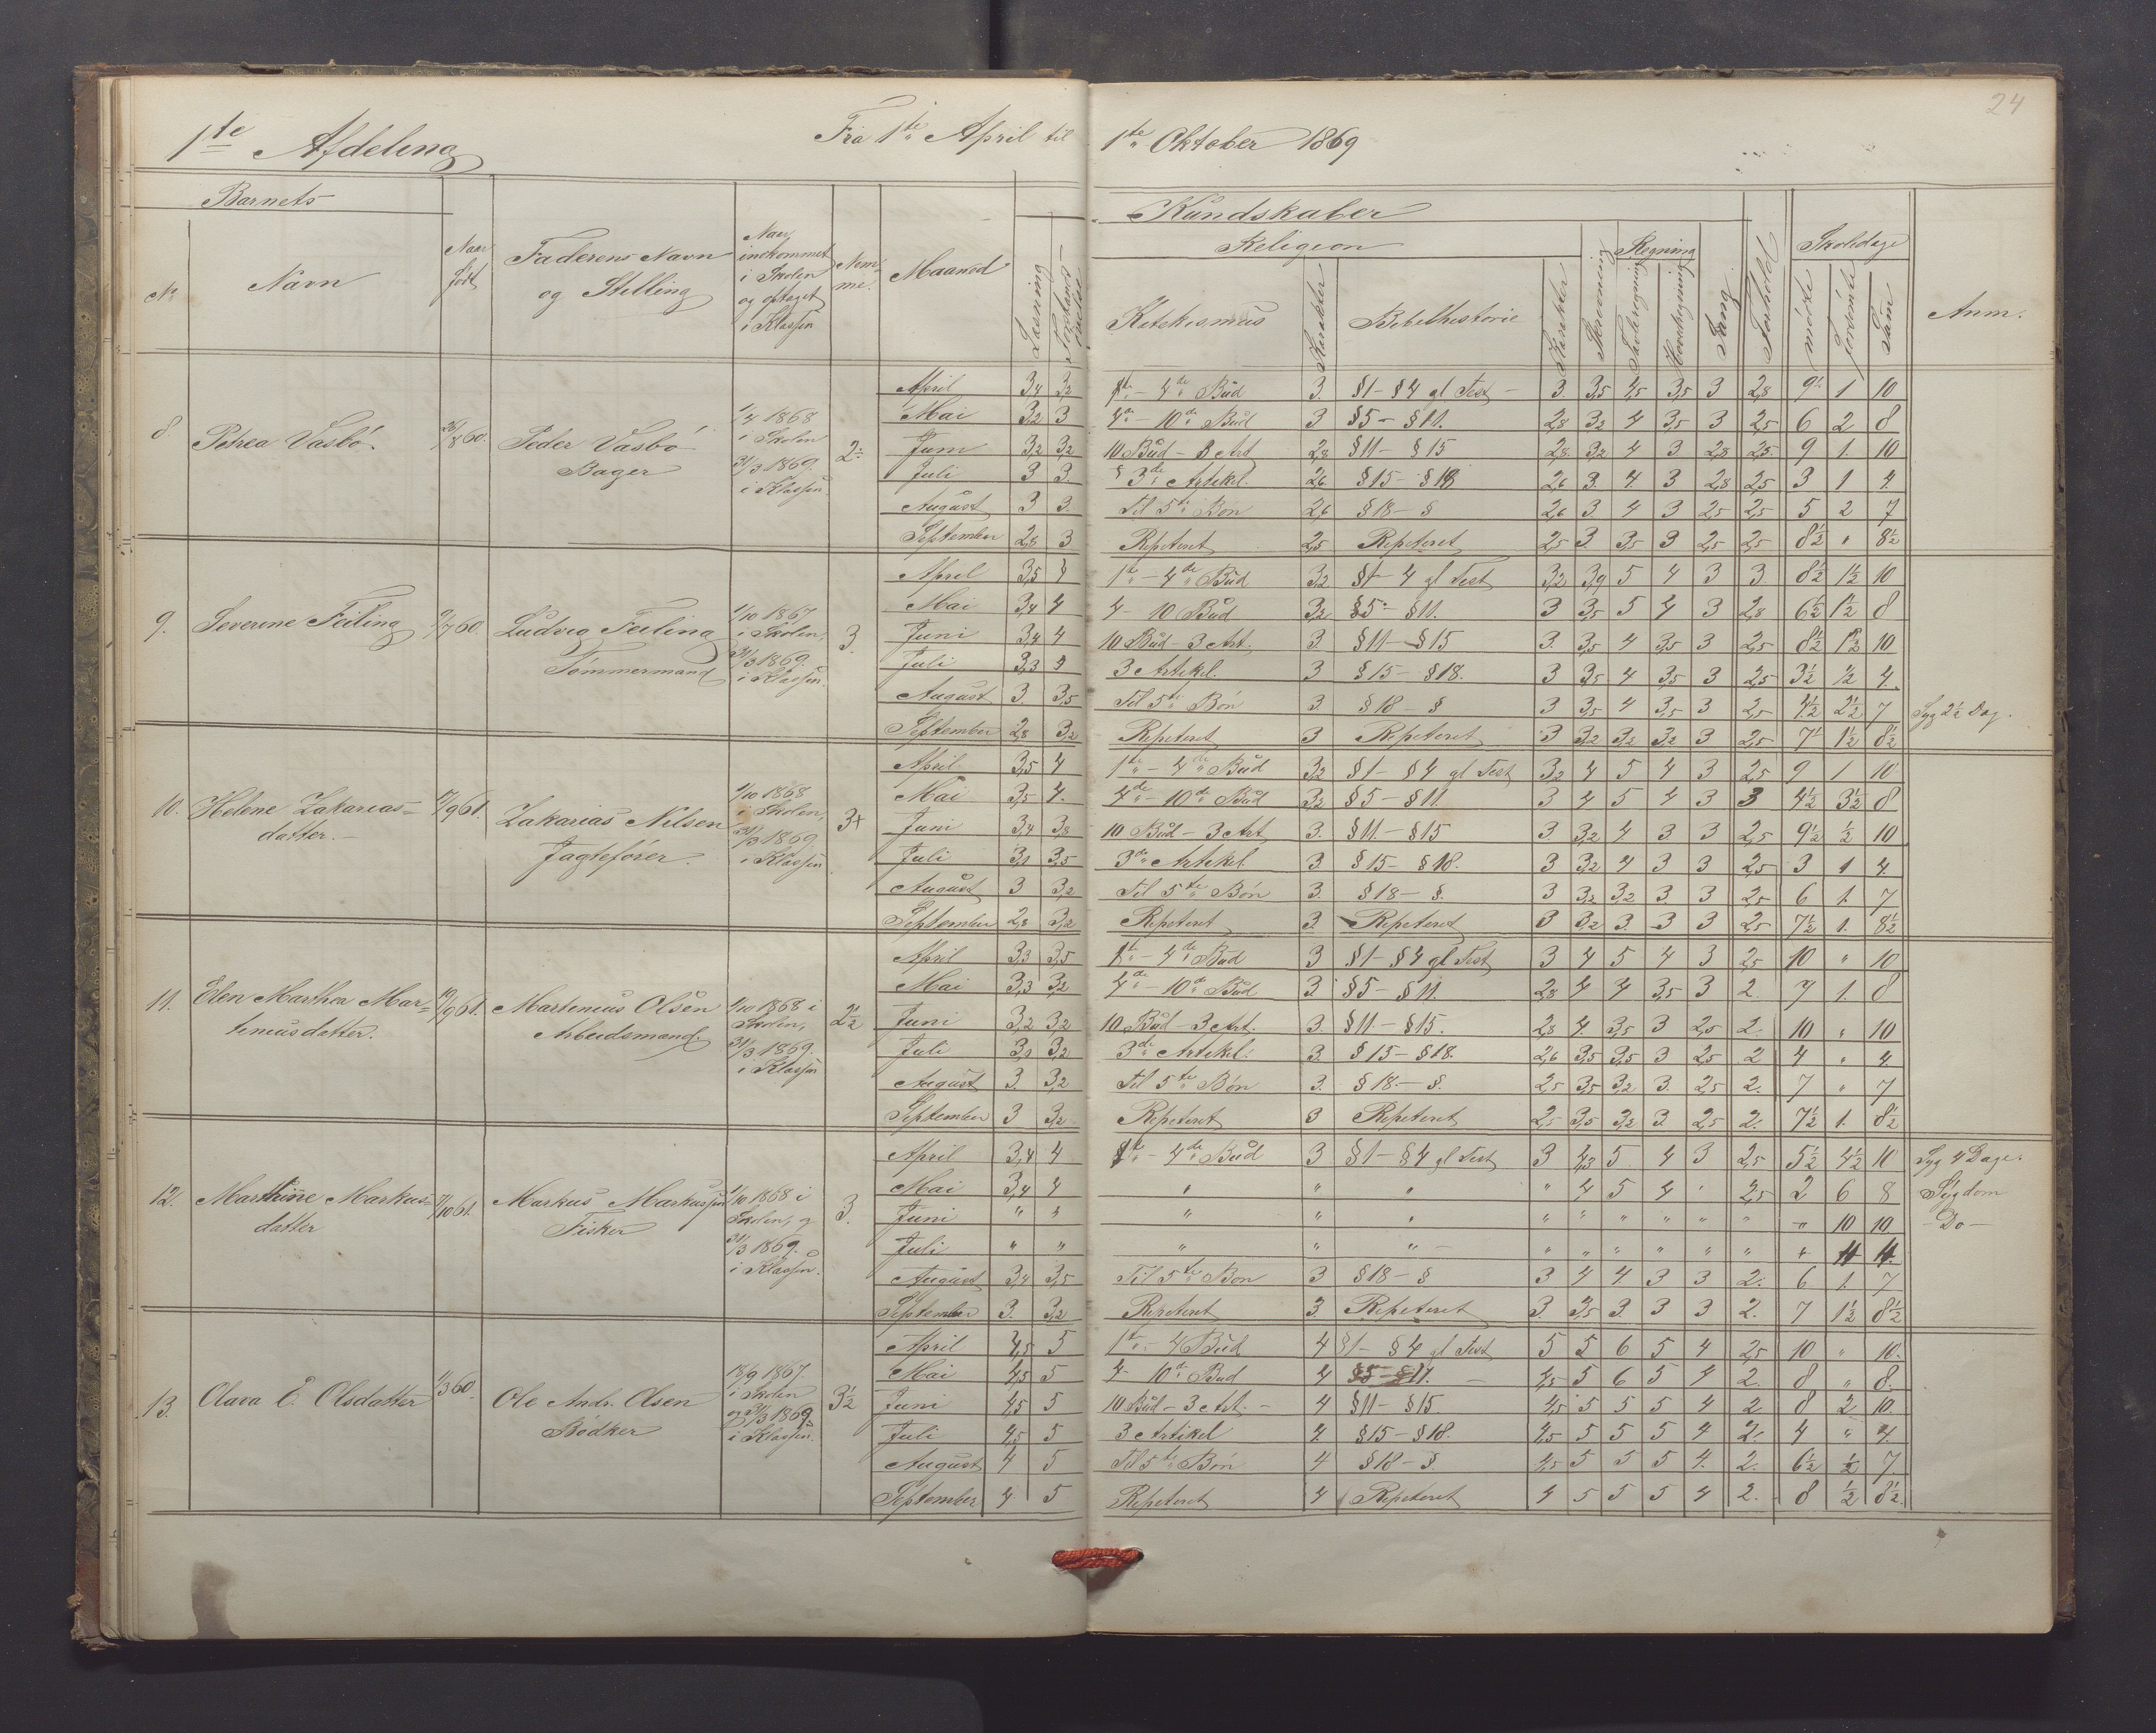 24
1ste Afdeling
Fra 1ste April til 1ste Oktober 1869
Barnets
Kundskaber
Religion
Regning
Skoledage
No
Navn
Naar født
Faderens Navn og Stilling
Naar indkommet i Skolen og optaget i Klassen
Nemme.
Maaned
Læsning
Katekismus
Karakter
Bibelhistorie
Karakter
Skrivning
Tavleregning
Hovedregning
Sang
Forhold
mødte
forsømte
Sum
Anm.
8. Petrea Vasbö 26/8 60. Peder Vasbö Bager 1/4 1868 i Skolen 31/3 1869. i Klassen 2÷
April 3,4 3,2 1ste - 4de Bud 3. §1 - §4 gl Test - 3. 3,5 4,5 3,5 3 2,8 9 1 10
Mai 3,2 3 4de - 10de Bud 3 §5 - §11. 2,8 3,2 4 3,5 3 2,5 6 2 8
Juni 3,2 3,2 10 Bud - 3 Art 2,8 §11 - §15 2,8 3,2 4 3 2,8 2,5 9 1. 10
Juli 3 3. 3de Artikel. 2,6 §15 - §18 2,6 3. 4 3 2,8 2,5 3 1 4.
August 3 3. Til 5te Bøn 2,6 §18 - § 2,6 3 4 3 2,5 2,5 5 2 7
September 2,8 3 Repeteret 2,5 Repeteret 2,5 3. 3,5 3 2,5 2,5 8½ " 8½
9. Severine Feiling 9/7 60. Ludvig Feiling Tømmermand 1/10 1867 i Skolen, 31/3 1869. i Klassen. 3.
April 3,5 4 1ste - 4de Bud 3,2 §1 - 4 gl Test 3,2 3,9 5 4 3 3. 8½ 1½ 10
Mai 3,4 4 4 - 10 Bud 3,2 §5 - §11. 3 3,5 5 4 3 2,8 6½ 1½ 8
Juni 3,4 4 10 Bud - 3 Art. 3. §11 - §15 3. 3,5 4 3,5 3 2,5 8½ 1½ 10
Juli 3,3 4 3 Artikel. 3 §15 - §18. 3 3,5 4 3,5 3 2,5 3½ ½ 4.
August 3. 3,5 Til 5te Bøn 3. §18 - § 3 3,5 4 3,5 3 2,5 4½ 2½ 7 Syg 2½ Dag.
September 2,8 3,2 Repeteret 3 Repeteret 3 3,2 3,2 3,2 3 2,5 7 1½ 8½
10. Helene Zakarias=datter. 17/9 61. Zakarias Nilsen Jagtefører. 1/10 1868 i Skolen, 31/3 1869 i Klassen 3+
April 3,5 4 1ste - 4de Bud 3,2 §1 - §4 gl Test 3,2 4 5 4 3 2,5 9 1 10
Mai 3,5 4. 4de - 10de Bud 3,2 §5 - §11. 3 4 5 4 3 3 4½ 3½ 8
Juni 3,4 3,8 10 Bud - 3 Art 3. §11. - §15 3. 3,2 4 3 3 2,5 9½ ½ 10
Juli 3,1 3,5 3de Artikel. 3 §15 - §18. 3 3,2 4 3 3 2,5 3 1 4.
August 3 3,2 Til 5te Bøn 3. §18 - §. 3 3,2 3,2 3 3 2,5 6 1. 7
September 2,8 3,2 Repeteret 3. Repeteret 3 3,2 3. 3 3 2,5 7½ 1. 8½
11. Elen Marthea Mar=tinusdatter. 19/9 61. Martinius Olsen Arbeidsmand. 1/10 1868 i Skolen, 31/3 1869. i Klassen 2½
April 3,3 3,5 1ste - 4de Bud 3 §1 - §4 gl Test 3 4 5 4 3 2,5 10 " 10
Mai 3,3 3,2 4de - 10de Bud 3. §5 - §11. 2,8 4 4 3,5 3 2. 7 1. 8
Juni 3,2 3,2 10 Bud - 3 Art. 3. §11. - §15. 2,8 4 3,5 3 2,5 2. 10 " 10
Juli 3,1 3,2 3de Artikel. 3 §15 - §18. 2,6 3,5 3,5 3 2,5 2 4 " 4.
August 3. 3,2 Til 5te Bøn 3. §18. - §. 2,5 3,5 3,2 3. 2,5 2. 7 " 7
September 3 3,2 Repeteret 3 Repeteret 2,5 3,5 3,2 3 2,5 2. 7½ 1. 8½
12. Marthine Markus=datter 7/10 61. Markus Markussen Fisker 1/10 1868 i Skolen, og 31/3 1869. i Klassen. 3.
April 3,4 4 1ste - 4de Bud 3 §1 - §4 gl Test 3 4,3 5 4 3 2,5 5½ 4½ 10 Syg 4 Dage.
Mai 3,4 4 " " " " 4 5 4 " 2,5 2 6 8 Sygdom
Juni " " " " " " " " " " " " 10 10 - Do -
Juli " " " " " " " " " " " " 4 4.
August 3,4 3,5 Til 5te Bøn 3 §18 - § 3 4 4 3 3 2. 6 1. 7
September 3. 3,2 Repeteret 3 Repeteret 3. 3,5 3. 3 3 2. 7 1½ 8½
13. Olava E. Olsdatter 1/3 60. Ole Andr. Olsen Bødker 18/9 1867. i Skolen og 31/3 1869 i Klassen. 3½
April 4,5 5 1ste - 4 Bud 4 §1 - §4 gl Test 5 5 6 5 4 2,5 10 " 10.
Mai 4,5 5 4 - 10de Bud 4 §5 - §11. 4,5 5 6 5 4 2. 8 " 8.
Juni 4,5 5 10 Bud - 3 Art. - 4 §11 - §15 4,5 5 5 5 4 2 8 2 10.
Juli 4,5 5 3 Artikel 4. §15 - §18. 4,5 5 5 5 4 2. 4 " 4.
August 4 5 Til 5te Bøn 4 §18 - §. 4,5 5 5 5 4. 2. 6½ ½ 7.
September 4 5 Repeteret 4 Repeteret 4 5 5 5 4 2. 8 ½ 8½.